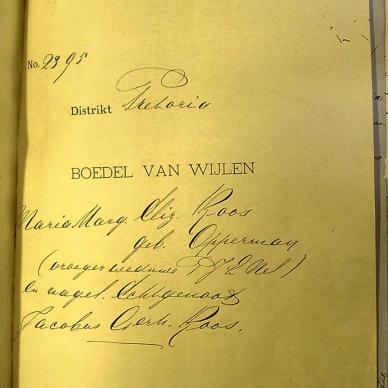 No. 2395
Distrikt Pretoria
BOEDEL VAN WIJLEN
Maria Marg Eliz. Roos
geb. Opperman
(vroeger weduwe P J E Nel)
en nagel. Echtgenoot
Jacobus Gerh. Roos.